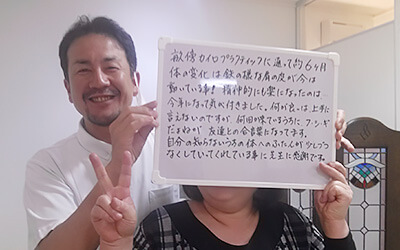 敏傍カイロプラクティックに通って約6ヶ月
体の変化は鉄の様な肩の皮が今は
動いている事!精神的にも楽になったのは…
今年になって気が付きました。何が良いは上手に
言えないのですが、何回か来ているうちに、フ・シ・ギ
だよねが友達との合言葉になってます。
自分の知らないうちの体へのふたんが少しづつ
なくしていてくれている事に先生に感謝です。